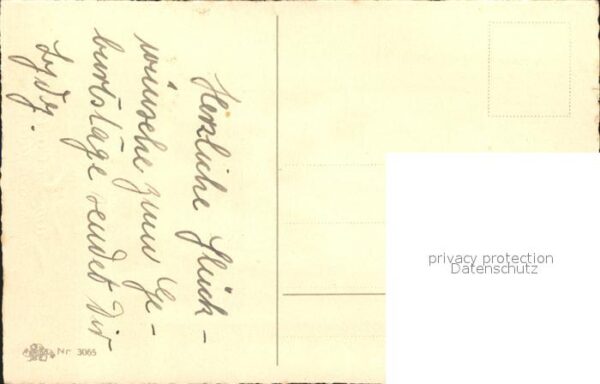 Herzliche Glück-
wünsche zum Ge-
burtstage sendet Dir
Nr 3065
privacy protection
Datenschutz